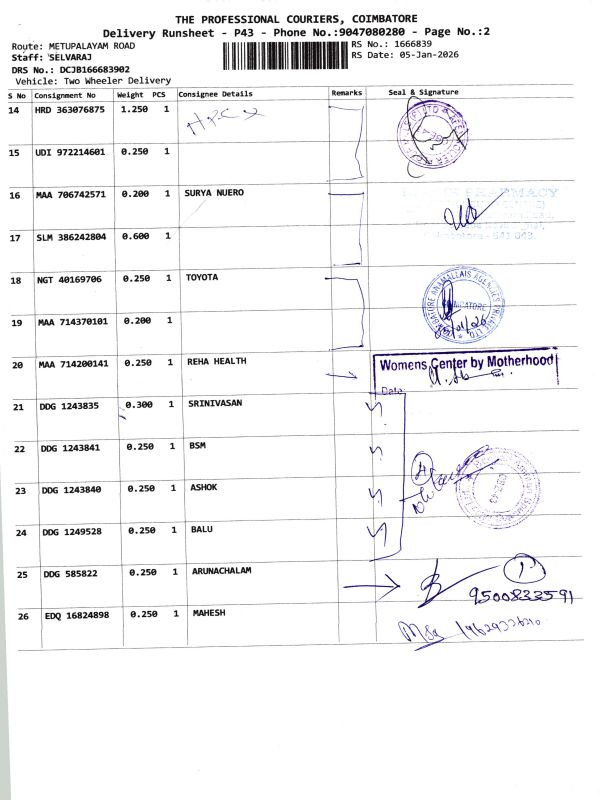 THE PROFESSIONAL COURIERS, COIMBATORE
Delivery Runsheet - P43 - Phone No.:9047080280 - Page No.:2
Route: METUPALAYAM ROAD
RS No.: 1666839
Staff: SELVARAJ
RS Date: 05-Jan-2026
DRS No.: DCJB166683902
Vehicle: Two Wheeler Delivery
S No Consignment No Weight PCS Consignee Details Remarks Seal & Signature
14 HRD 363076875 1.250 1
15 UDI 972214601 0.250 1
16 MAA 706742571 0.200 1 SURYA NUERO
PHARMACY
17 SLM 386242804 0.600 1
18 NGT 40169706 0.250 1 TOYOTA
COIMBATORE ANAMALLAIS AGENCIES PRIVATE LTD
COIMBATORE
05/01/26
19 MAA 714370101 0.200 1
20 MAA 714200141 0.250 1 REHA HEALTH
Womens Center by Motherhood
Date
21 DDG 1243835 0.300 1 SRINIVASAN
22 DDG 1243841 0.250 1 BSM
23 DDG 1243840 0.250 1 ASHOK
4
CBE-43
24 DDG 1249528 0.250 1 BALU
25 DDG 585822 0.250 1 ARUNACHALAM
9500833591
26 EDQ 16824898 0.250 1 MAHESH